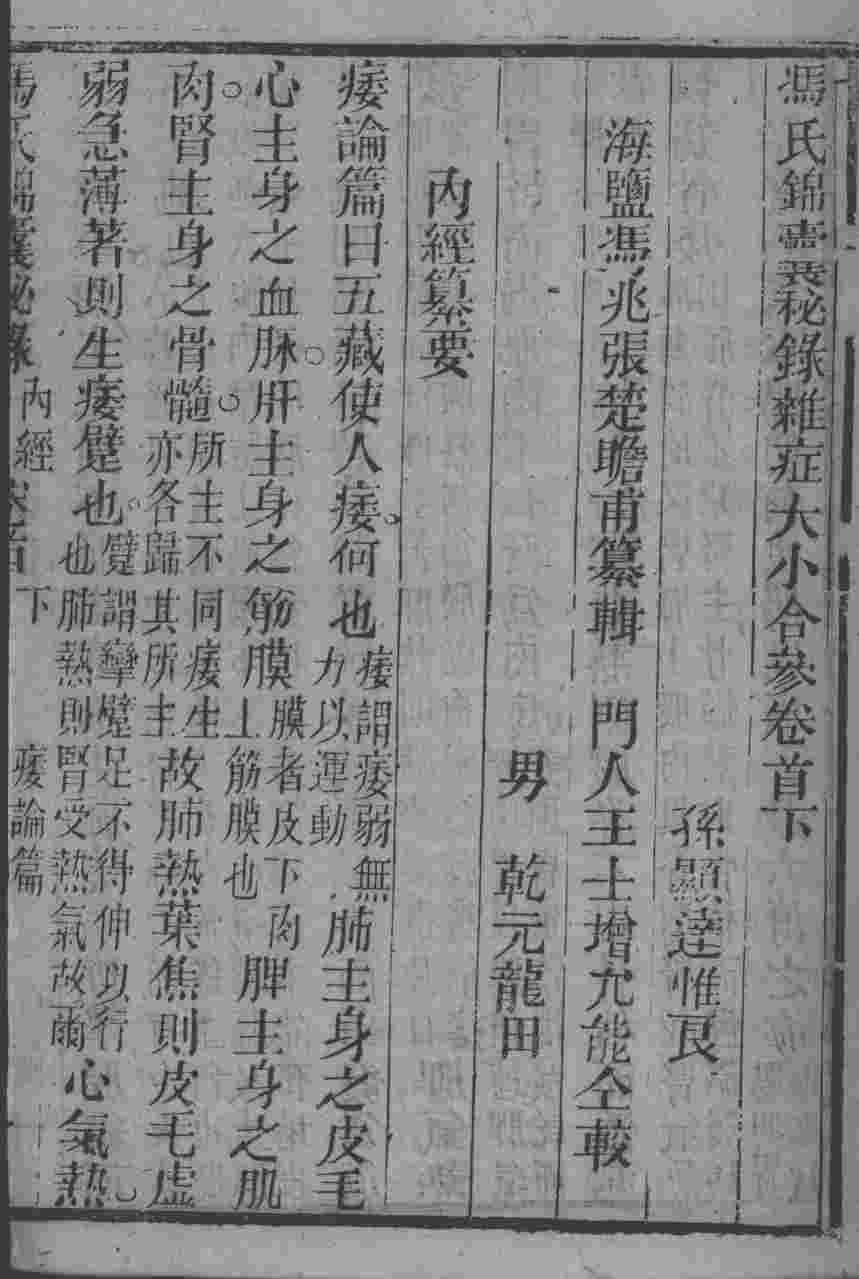 馮氏錦囊秘錄雜症大小合參卷首下
孫顯達惟良
海鹽馮兆張楚瞻甫纂輯　門人王士增允能仝較
男　乾元龍田
內經纂要
痿論篇曰五藏使人痿何也痿謂痿弱無力以運動肺主身之皮毛
心主身之血脉肝主身之筋膜膜者皮下肉上筋膜也脾主身之肌
肉腎主身之骨髓所主不同痿生亦各歸其所主故肺熱葉焦則皮毛虛
弱急薄著則生痿躄也躄謂攣躄足不得伸以行也肺熱則腎受熱氣故爾心氣熱
馮氏錦囊秘錄　內經　卷首下　痿論篇